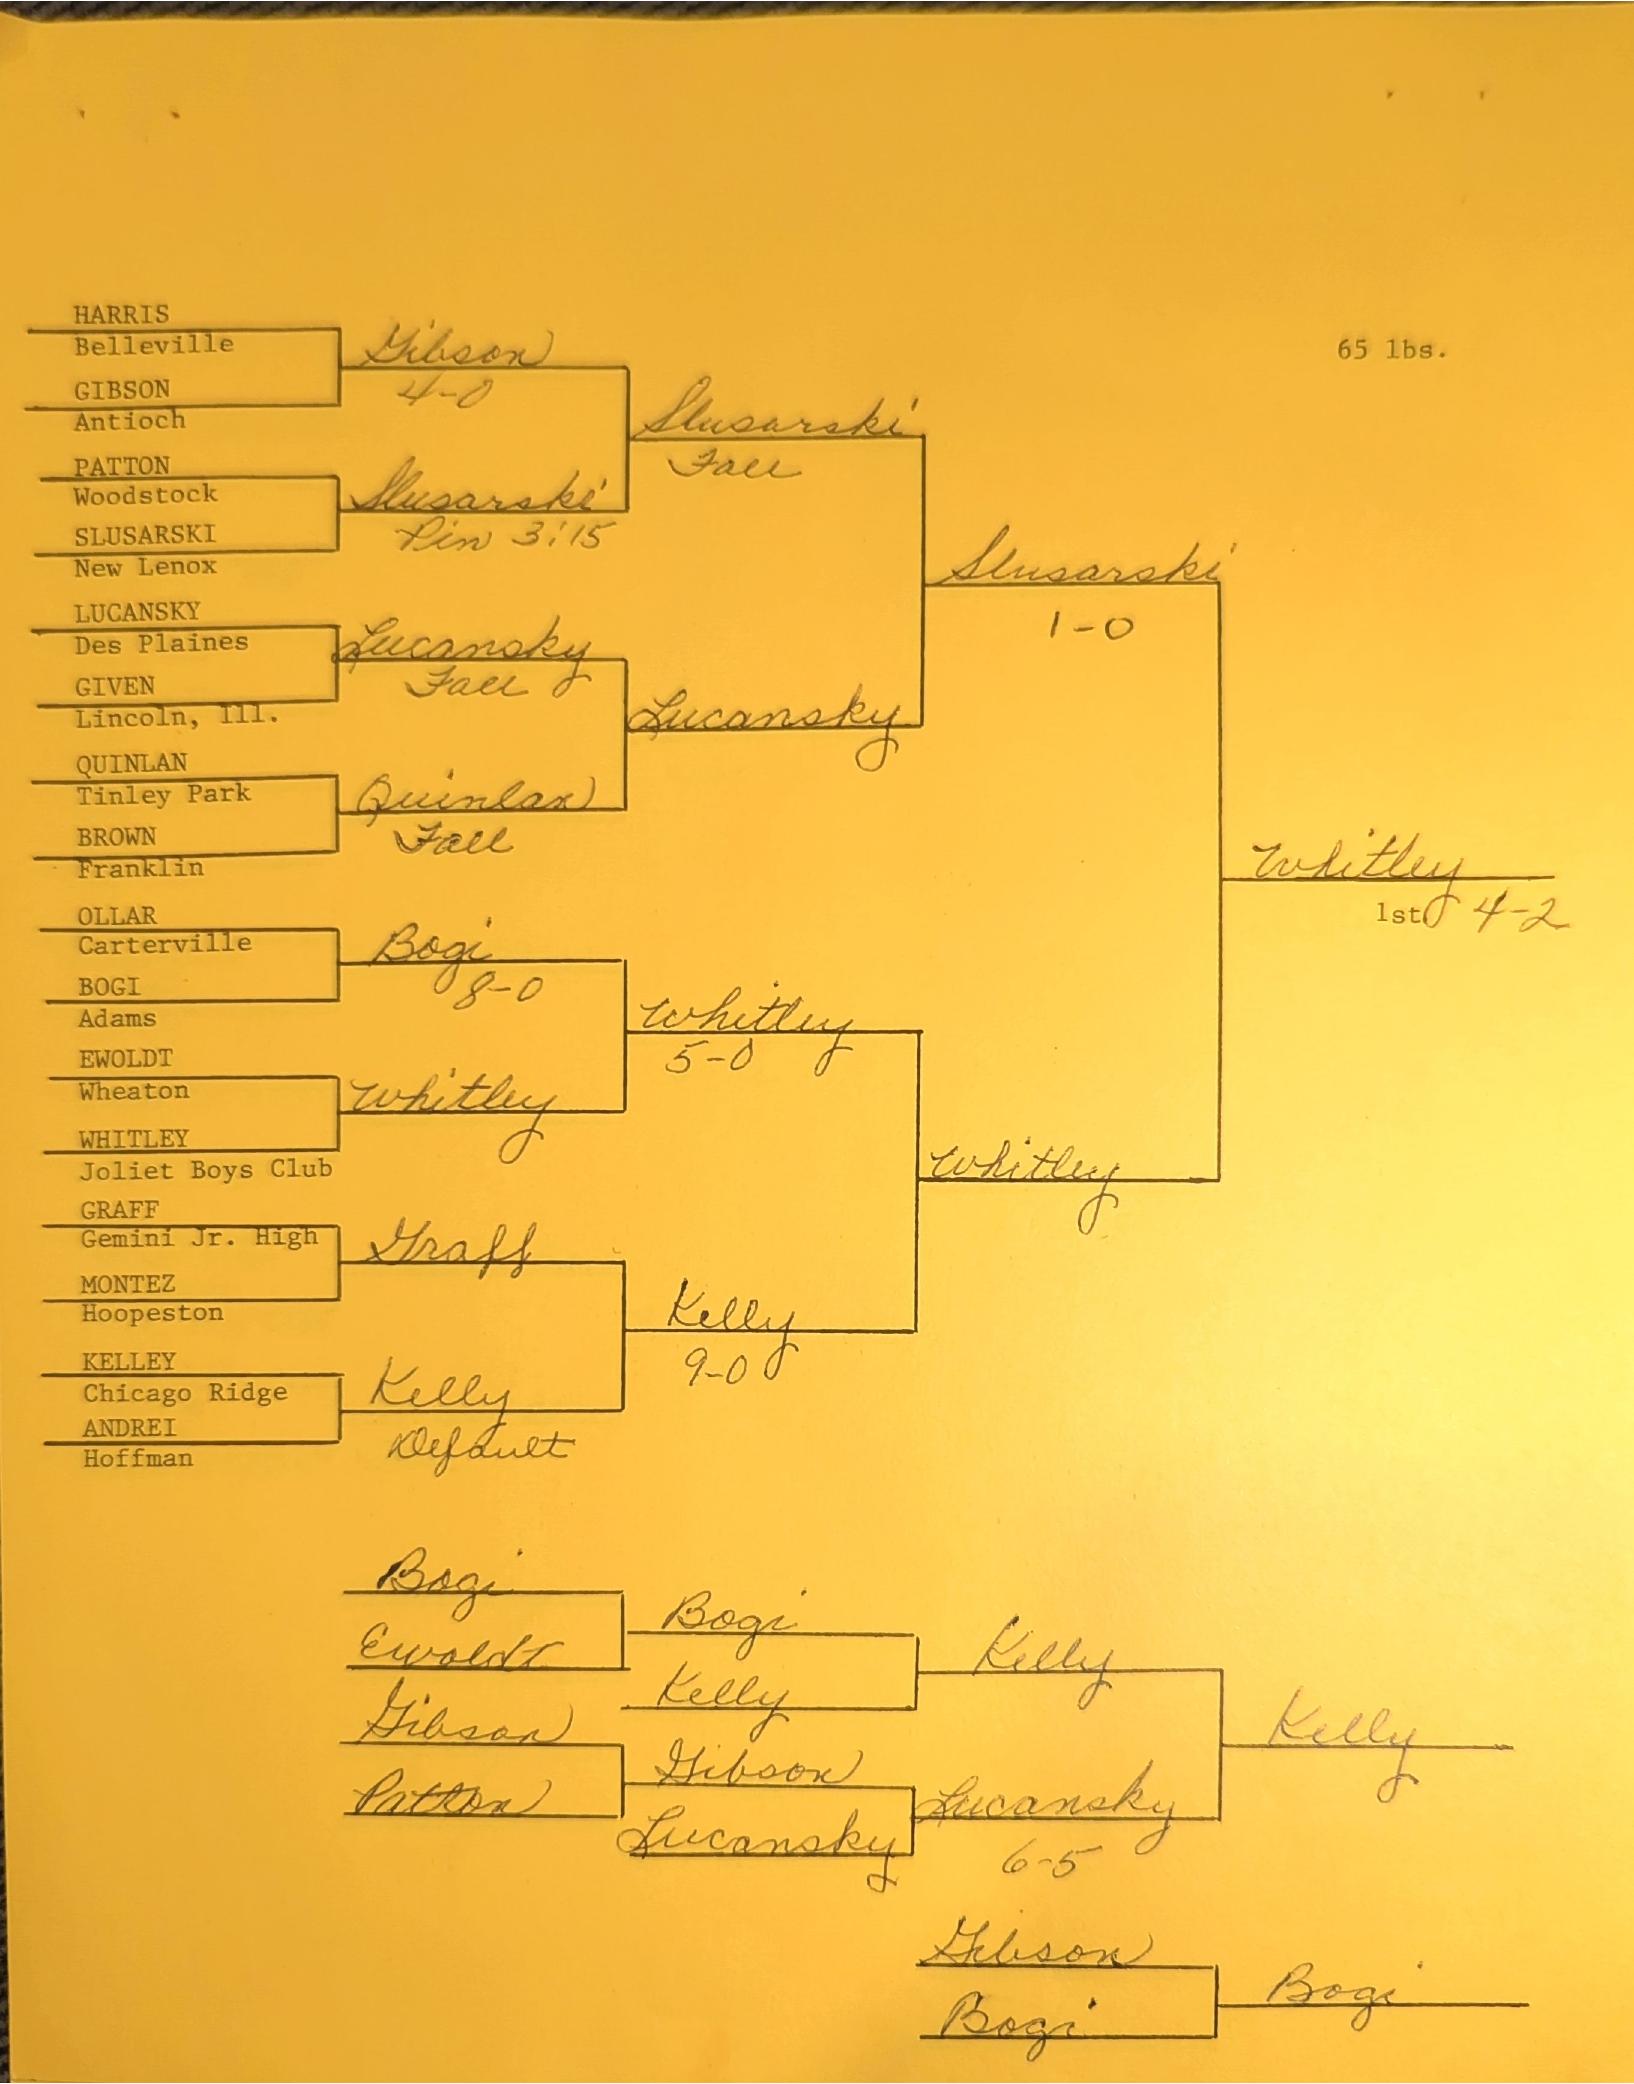 HARRIS
Belleville
GIBSON
Antioch
PATTON
Woodstock
SLUSARSKI
New Lenox
LUCANSKY
Des Plaines
GIVEN
Lincoln, Ill.
QUINLAN
Tinley Park
BROWN
Franklin
OLLAR
Carterville
BOGI
Adams
EWOLDT
Wheaton
WHITLEY
Joliet Boys Club
GRAFF
Gemini Jr. High
MONTEZ
Hoopeston
KELLEY
Chicago Ridge
ANDREI
Hoffman
Gibson
4-0
Slusarski
Pin 3:15
Lucansky
Fall
Quinlan
Fall
Bogi
8-0
Whitley
Graff
Kelly
Default
Slusarski
Fall
Lucansky
Whitley
5-0
Kelly
9-0
Slusarski
1-0
Whitley
65 lbs.
Whitley
1st 4-2
Bogi
Ewoldt
Gibson
Patton
Bogi
Kelly
Gibson
Lucansky
Kelly
Lucansky
6-5
Kelly
Gibson
Bogi
Bogi